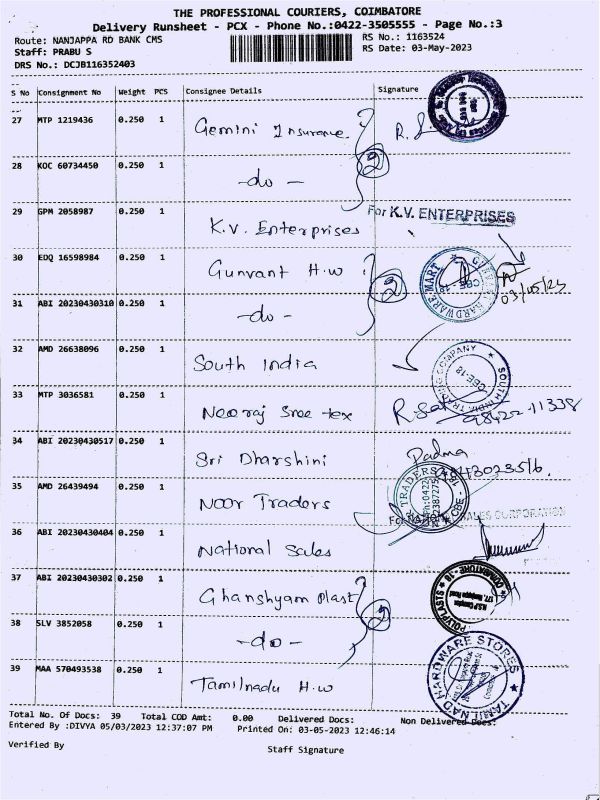 THE PROFESSIONAL COURIERS, COIMBATORE
Delivery Runsheet - PCX - Phone No.:0422-3505555 - Page No.:3
Route: NANJAPPA RD BANK CMS RS No.: 1163524
Staff: PRABU S RS Date: 03-May-2023
DRS No.: DCJB116352403
S No Consignment No Weight PCS Consignee Details Signature
27 MTP 1219436 0.250 1 Gemini Insurance
28 KOC 60734450 0.250 1 -do- 2
29 GPM 2058987 0.250 1 K.V. Enterprises For K.V. ENTERPRISES
30 EDQ 16598984 0.250 1 Gunvant H.W 03/05/23
31 ABI 20230430310 0.250 1 -do- 2
32 AMD 26638096 0.250 1 South India SOUTH INDIA TRADING COMPANY CBE-18
33 MTP 3036581 0.250 1 Neeraj Sree tex 98422-11338
34 ABI 20230430517 0.250 1 Sri Dharshini Padma
35 AMD 26439494 0.250 1 Noor Traders TRADERS CBE
36 ABI 20230430404 0.250 1 National Sales SALES CORPORATION
37 ABI 20230430302 0.250 1 Ghanshyam Plast POLYPLASTS COIMBATORE - 18
38 SLV 3852058 0.250 1 -do- 2
39 MAA 570493538 0.250 1 Tamilnadu H.W TAMILNAD HARDWARE STORES
Total No. Of Docs: 39 Total COD Amt: 0.00 Delivered Docs: Non Delivered Docs:
Entered By :DIVYA 05/03/2023 12:37:07 PM Printed On: 03-05-2023 12:46:14
Verified By Staff Signature